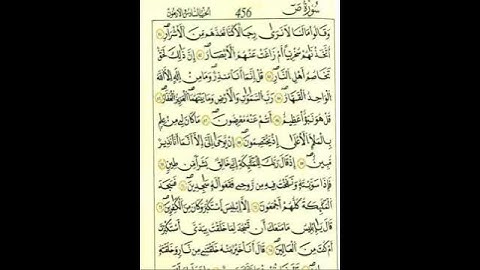 سُورَةُ صٓ 456 الجزء الثالث والعشرون
وَقَالُوا۟ مَا لَنَا لَا نَرَىٰ رِجَالًا كُنَّا نَعُدُّهُم مِّنَ ٱلْأَشْرَارِ ۝٦٢
أَتَّخَذْنَٰهُمْ سِخْرِيًّا أَمْ زَاغَتْ عَنْهُمُ ٱلْأَبْصَٰرُ ۝٦٣ إِنَّ ذَٰلِكَ لَحَقٌّ
تَخَاصُمُ أَهْلِ ٱلنَّارِ ۝٦٤ قُلْ إِنَّمَآ أَنَا۠ مُنذِرٌ وَمَا مِنْ إِلَٰهٍ إِلَّا ٱللَّهُ
ٱلْوَٰحِدُ ٱلْقَهَّارُ ۝٦٥ رَبُّ ٱلسَّمَٰوَٰتِ وَٱلْأَرْضِ وَمَا بَيْنَهُمَا ٱلْعَزِيزُ ٱلْغَفَّٰرُ ۝٦٦
قُلْ هُوَ نَبَؤٌا۟ عَظِيمٌ ۝٦٧ أَنتُمْ عَنْهُ مُعْرِضُونَ ۝٦٨ مَا كَانَ لِىَ مِنْ عِلْمٍۭ
بِٱلْمَلَإِ ٱلْأَعْلَىٰٓ إِذْ يَخْتَصِمُونَ ۝٦٩ إِن يُوحَىٰٓ إِلَىَّ إِلَّآ أَنَّمَآ أَنَا۠ نَذِيرٌ
مُّبِينٌ ۝٧٠ إِذْ قَالَ رَبُّكَ لِلْمَلَٰٓئِكَةِ إِنِّى خَٰلِقٌۢ بَشَرًا مِّن طِينٍ ۝٧١
فَإِذَا سَوَّيْتُهُۥ وَنَفَخْتُ فِيهِ مِن رُّوحِى فَقَعُوا۟ لَهُۥ سَٰجِدِينَ ۝٧٢ فَسَجَدَ
ٱلْمَلَٰٓئِكَةُ كُلُّهُمْ أَجْمَعُونَ ۝٧٣ إِلَّآ إِبْلِيسَ ٱسْتَكْبَرَ وَكَانَ مِنَ ٱلْكَٰفِرِينَ ۝٧٤
قَالَ يَٰٓإِبْلِيسُ مَا مَنَعَكَ أَن تَسْجُدَ لِمَا خَلَقْتُ بِيَدَىَّ أَسْتَكْبَرْتَ
أَمْ كُنتَ مِنَ ٱلْعَالِينَ ۝٧٥ قَالَ أَنَا۠ خَيْرٌ مِّنْهُ خَلَقْتَنِى مِن نَّارٍ وَخَلَقْتَهُۥ